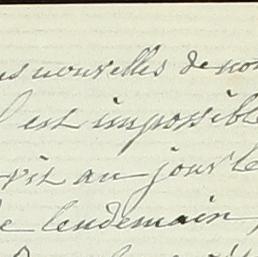 nouvelles de
est impossible
vit au jour le
lendemain,